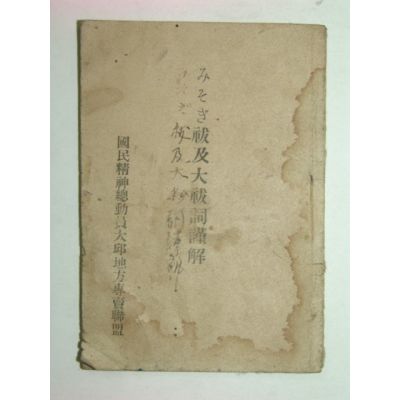 みそぎ祓及大祓詞謹解
みそぎ祓及大
國民精神總動員大邱地方專賣聯盟